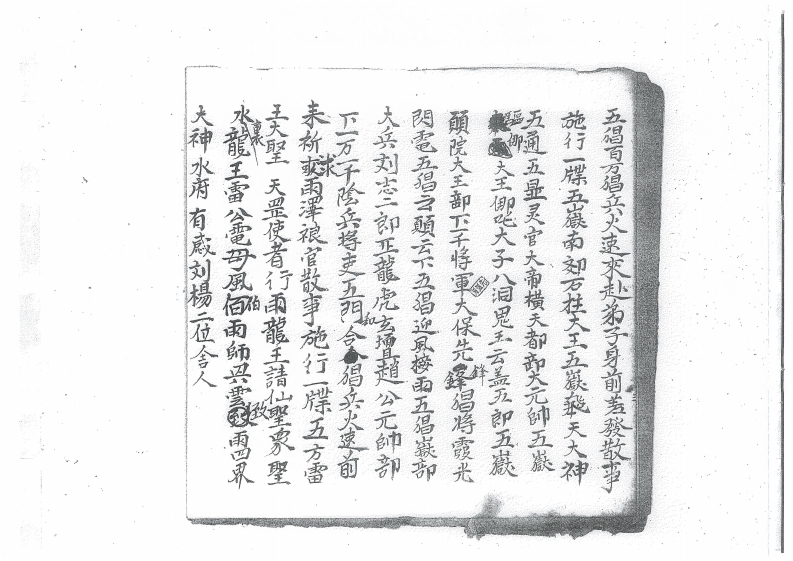 五猖百万猖兵火速來赴弟子身前若發散事
施行一牒五嶽南郊万姓大王五嶽飛天大神
五通五显灵官大帝横天都部大元帅五嶽
驅使大王哪吒太子八洞鬼王云盖五郎五嶽
頭院大王部下千將軍大保先鋒猖將霞光
閃電五猖云頭云下五猖迎風接雨五猖嶽部
大兵刘志二郎正龍虎玄壇趙公元帅部
下一万一千陰兵將吏五門合和猖兵火速前
来祈求雨澤禄官散事施行一牒五方雷
王大聖天罡使者行雨龍王諸仙聖衆聖
水龍王雷公電母風伯雨師兴雲致雨四界
大神水府有感刘楊二位舍人